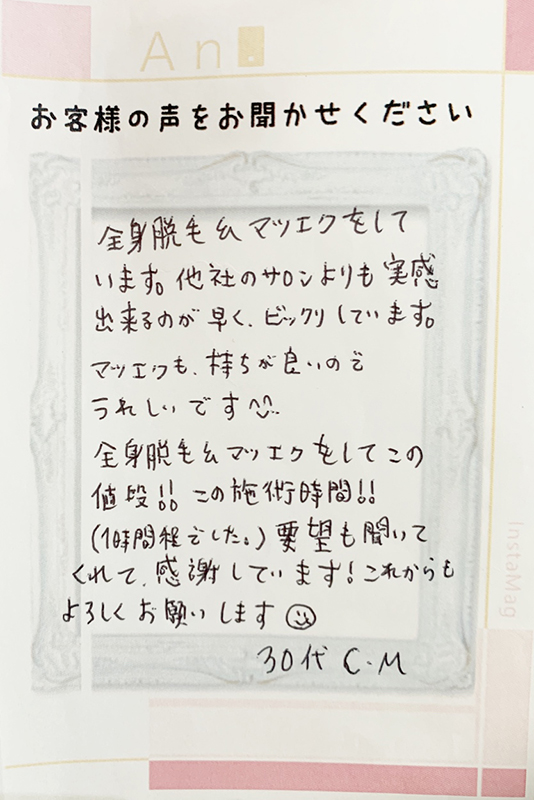 An
お客様の声をお聞かせください
全身脱毛&マツエクをして
います。他社のサロンよりも実感
出来るのが早く、ビックリしています。
マツエクも、持ちが良いので
うれしいです^^
全身脱毛&マツエクをしてこの
値段!! この施術時間!!
(1時間程でした。) 要望も聞いて
くれて、感謝しています! これからも
よろしくお願いします
30代 C.M
InstaMag